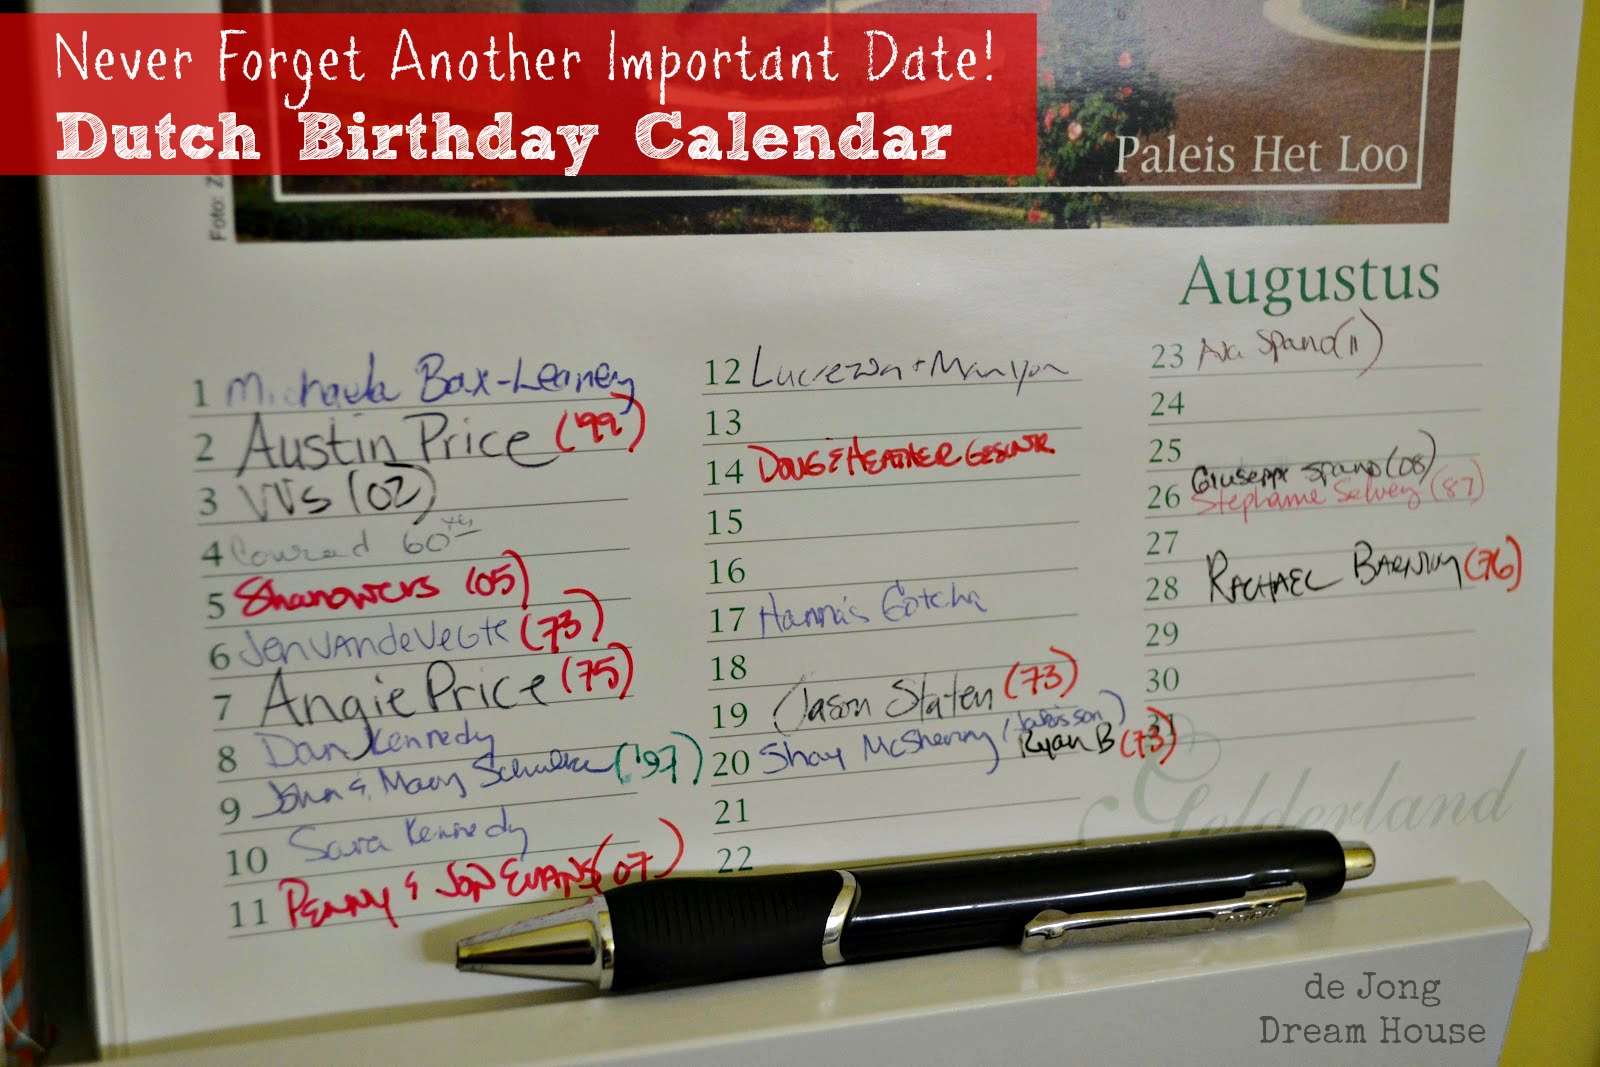 Never Forget Another Important Date!
Dutch Birthday Calendar
Paleis Het Loo
Foto:
Augustus
1 Michaela Bax-Leaney
2 Austin Price ('99)
3 VVs (02)
4 Conrad 60
5 Shanowers (05)
6 Jen VandeVegte (73)
7 Angie Price (75)
8 Dan Kennedy
9 John & Mary ('97)
10 Sara Kennedy
11 PENNY & JON EVANS (07)
12
13
14 DOUG & HEATHER
15
16
17 Hanna's Gotcha
18
19 Jason Staten (73)
20 Shay McSherry Ryan B (73)
21
22
23 Ava Spano (11)
24
25
Giuseppe Spano (08)
26 Stephanie Selvey (87)
27
28 RACHAEL (76)
29
30
31
Gelderland
de Jong
Dream House